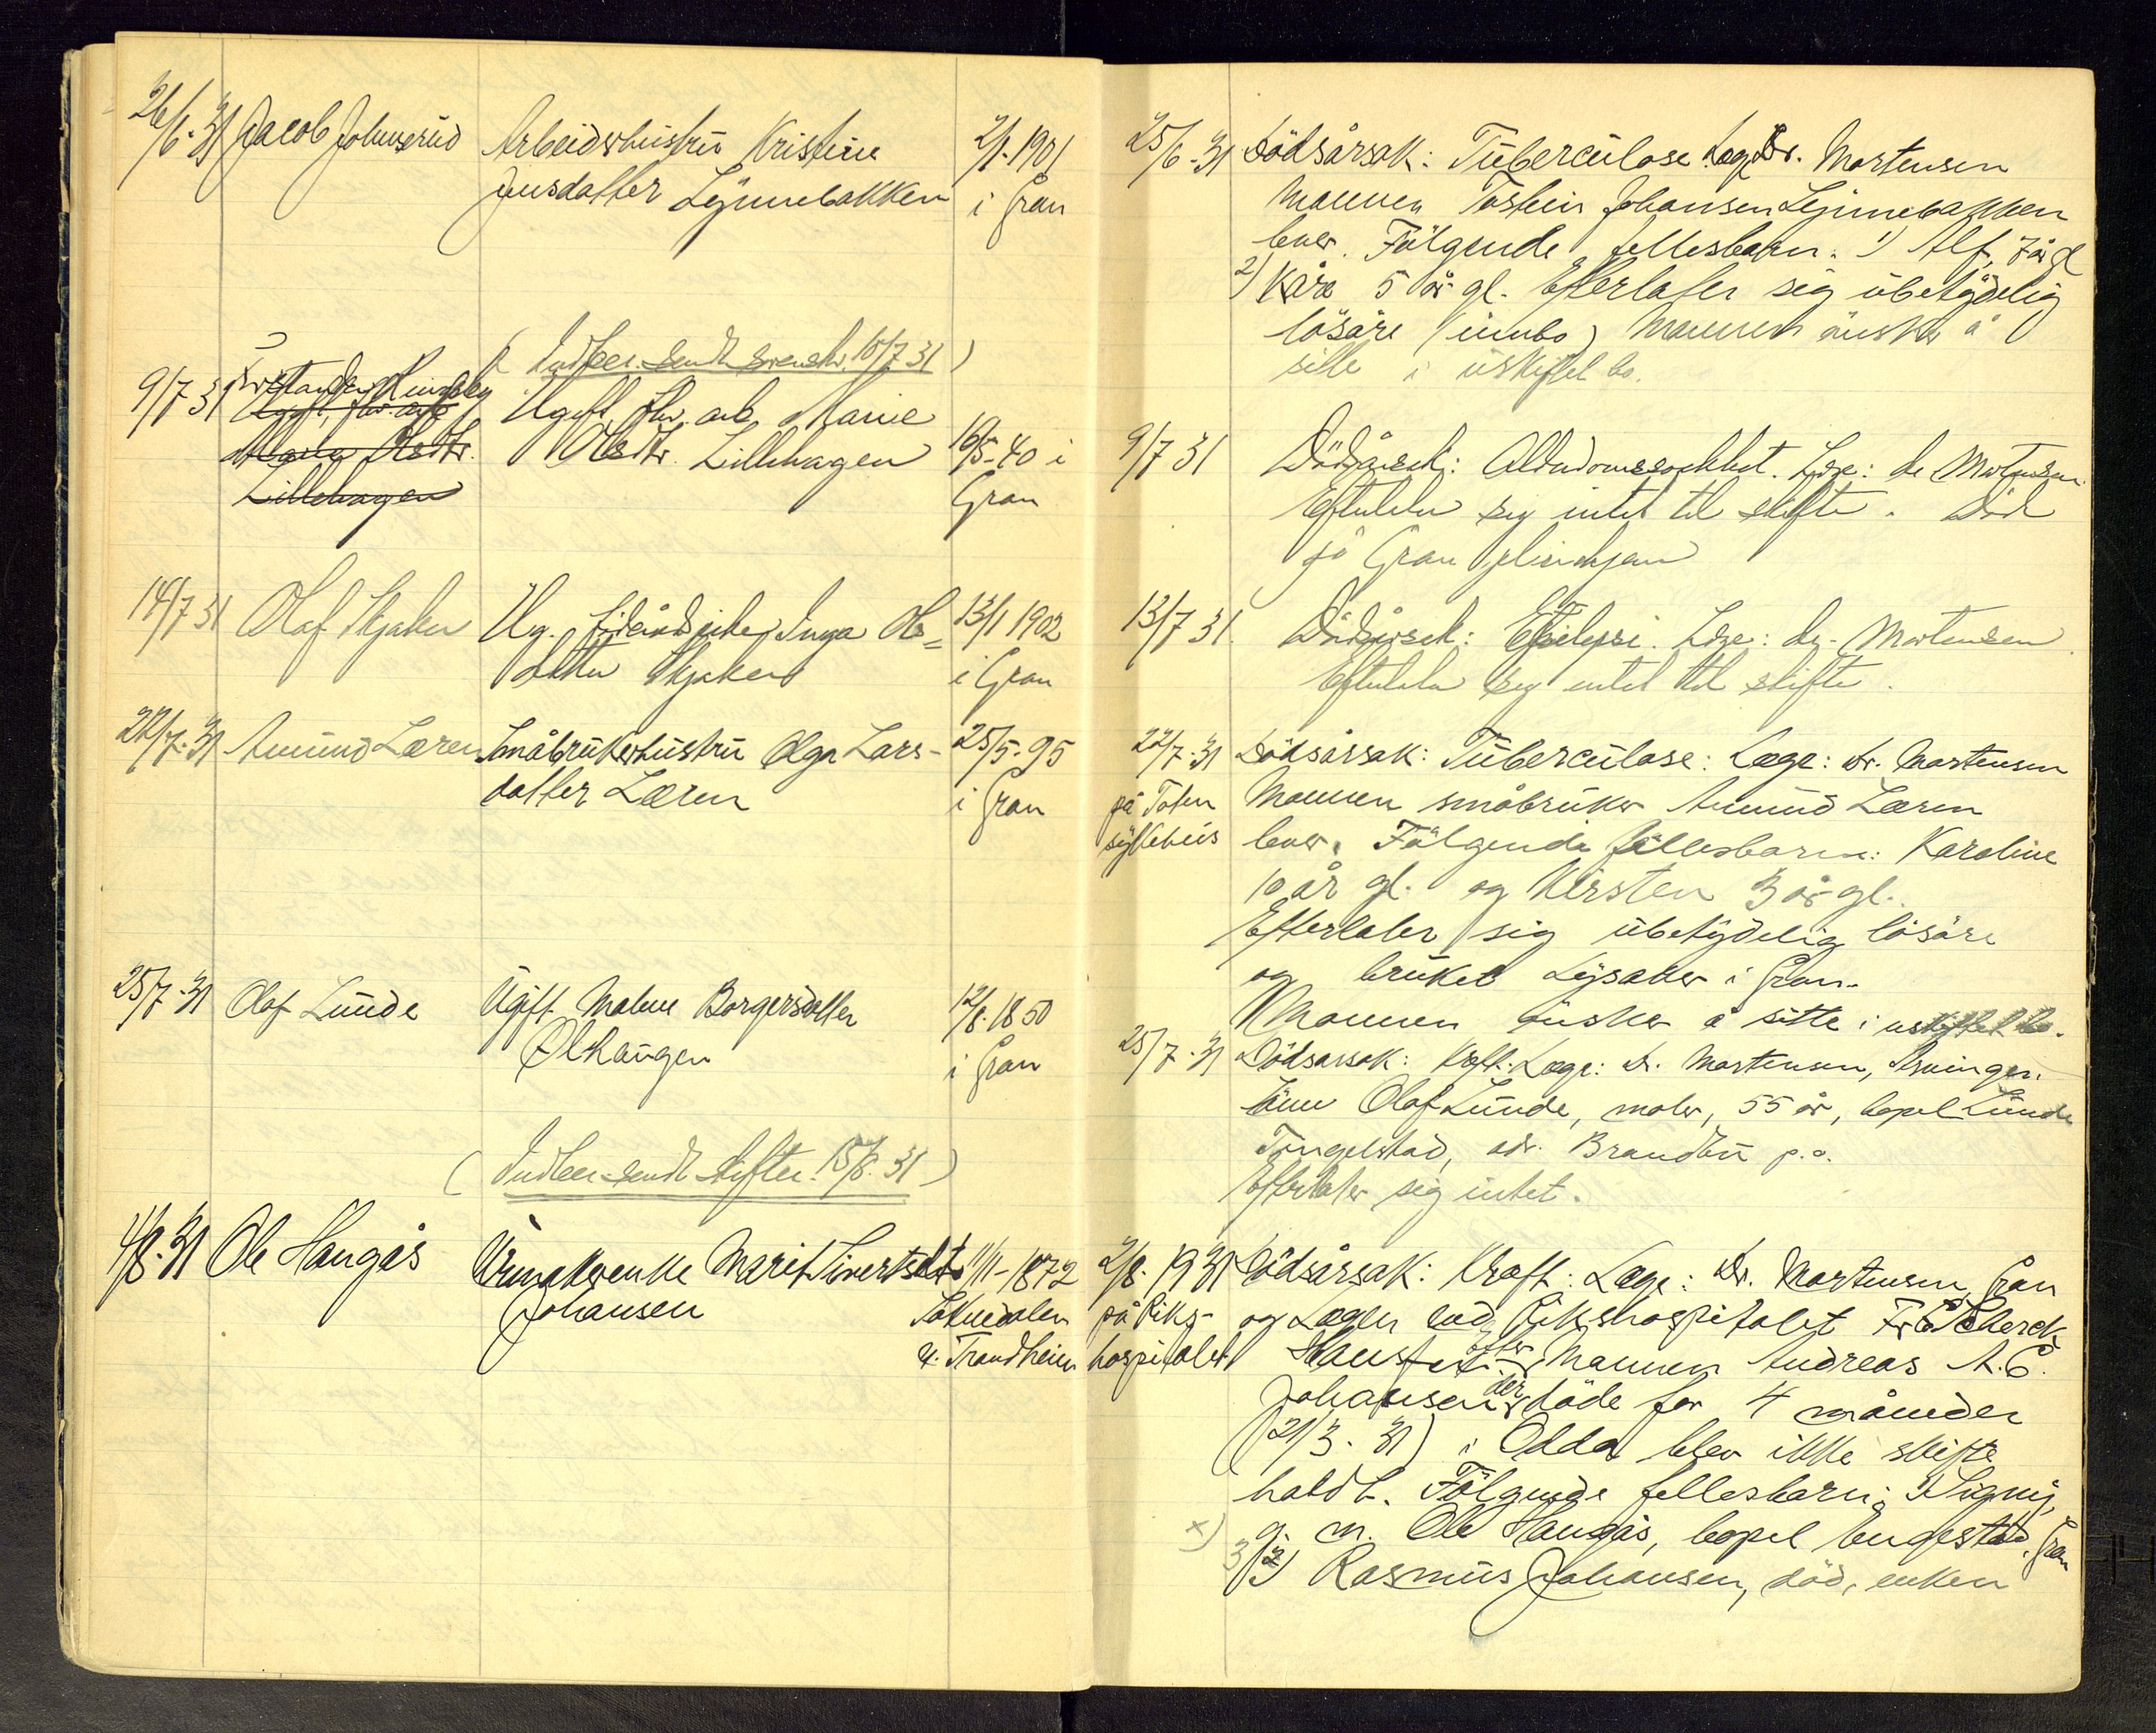 26/6-31 Jacob Johnsrud Arbeiderhustru Kristine 2/1-1901
Jensdatter Lynnebakken i Gran
(Indber. sendt svensk. 10/7 31)
9/7 31 Forstander Ringsby Ugift, fhv. arb. Marie 16/5-40 i
Ugift, fhv. arb.
Maria Olsdtr. Olsdtr. Lillehagen Gran
Lillehagen
14/7 31 Olaf Skjaker Ug. Inga Ols= 13/1 1902
datter Skjaker i Gran
22/7-31 Amund Læren Småbrukerhustru Olga Lars- 25/5-95
datter Læren i Gran
25/7-31 Olaf Lunde Ugift Malene Borgersdatter 12/8-1850
Ølhaugen i Gran
(Indber. sendt skifter. 15/8-31)
4/8-31 Ole Haugås Urmakerenke Marit Sivertsdtr 11/11-1872
Johansen Soknedalen
v. Trondheim
25/6-31 Dödsårsak: Tuberculose. Læge Dr. Mortensen
Mannen Torstein Johansen Lynnebakken
lever. Fölgende fellesbarn: 1) Alf, 7 år gl
2) Kåre 5 år gl. Efterlater sig ubetydelig
lösöre (innbo) Mannen önsker å
sitte i uskiftet bo.
9/7 31 Dödsårsak: Alderdomssvakhet. Læge: dr. Mortensen.
Efterlater sig intet til skifte. Död
på Gran pleiehjem
13/7 31. Dödsårsak: Epilepsi. Læge: dr. Mortensen.
Efterlater sig intet til skifte.
22/7-31 Dödsårsak: Tuberculose: Læge: Dr. Mortensen
på Toten Mannen småbruker Amund Læren
sykehus lever. Fölgende fellesbarn: Karoline
10 år gl. og Kirsten 3 år gl.
Efterlater sig ubetydelig lösöre
og bruket Lysaker i Gran.
Mannen önsker å sitte i uskiftet bo.
25/7-31 Dödsårsak: Kreft. Læge: Dr. Mortensen, Arvinger.
Sönn Olaf Lunde, maler, 55 år, bopel Lunde
Tingelstad, adr. Brandbu p.o.
Efterlater sig intet.
2/8-1931 Dödsårsak: Kræft: Læge: Dr. Mortensen, Gran
på Riks- og Lægen ved Rikshospitalet
hospitalet efter Mannen Andreas A. E.
Johansen der döde for 4 måneder
(21/3-31) i Odda blev ikke skifte
holdt. Fölgende fellesbarn: 1) Signy,
x) g. m. Ole Haugås, bopel Engestad, Gran
3) Rasmus Johansen, död, enken